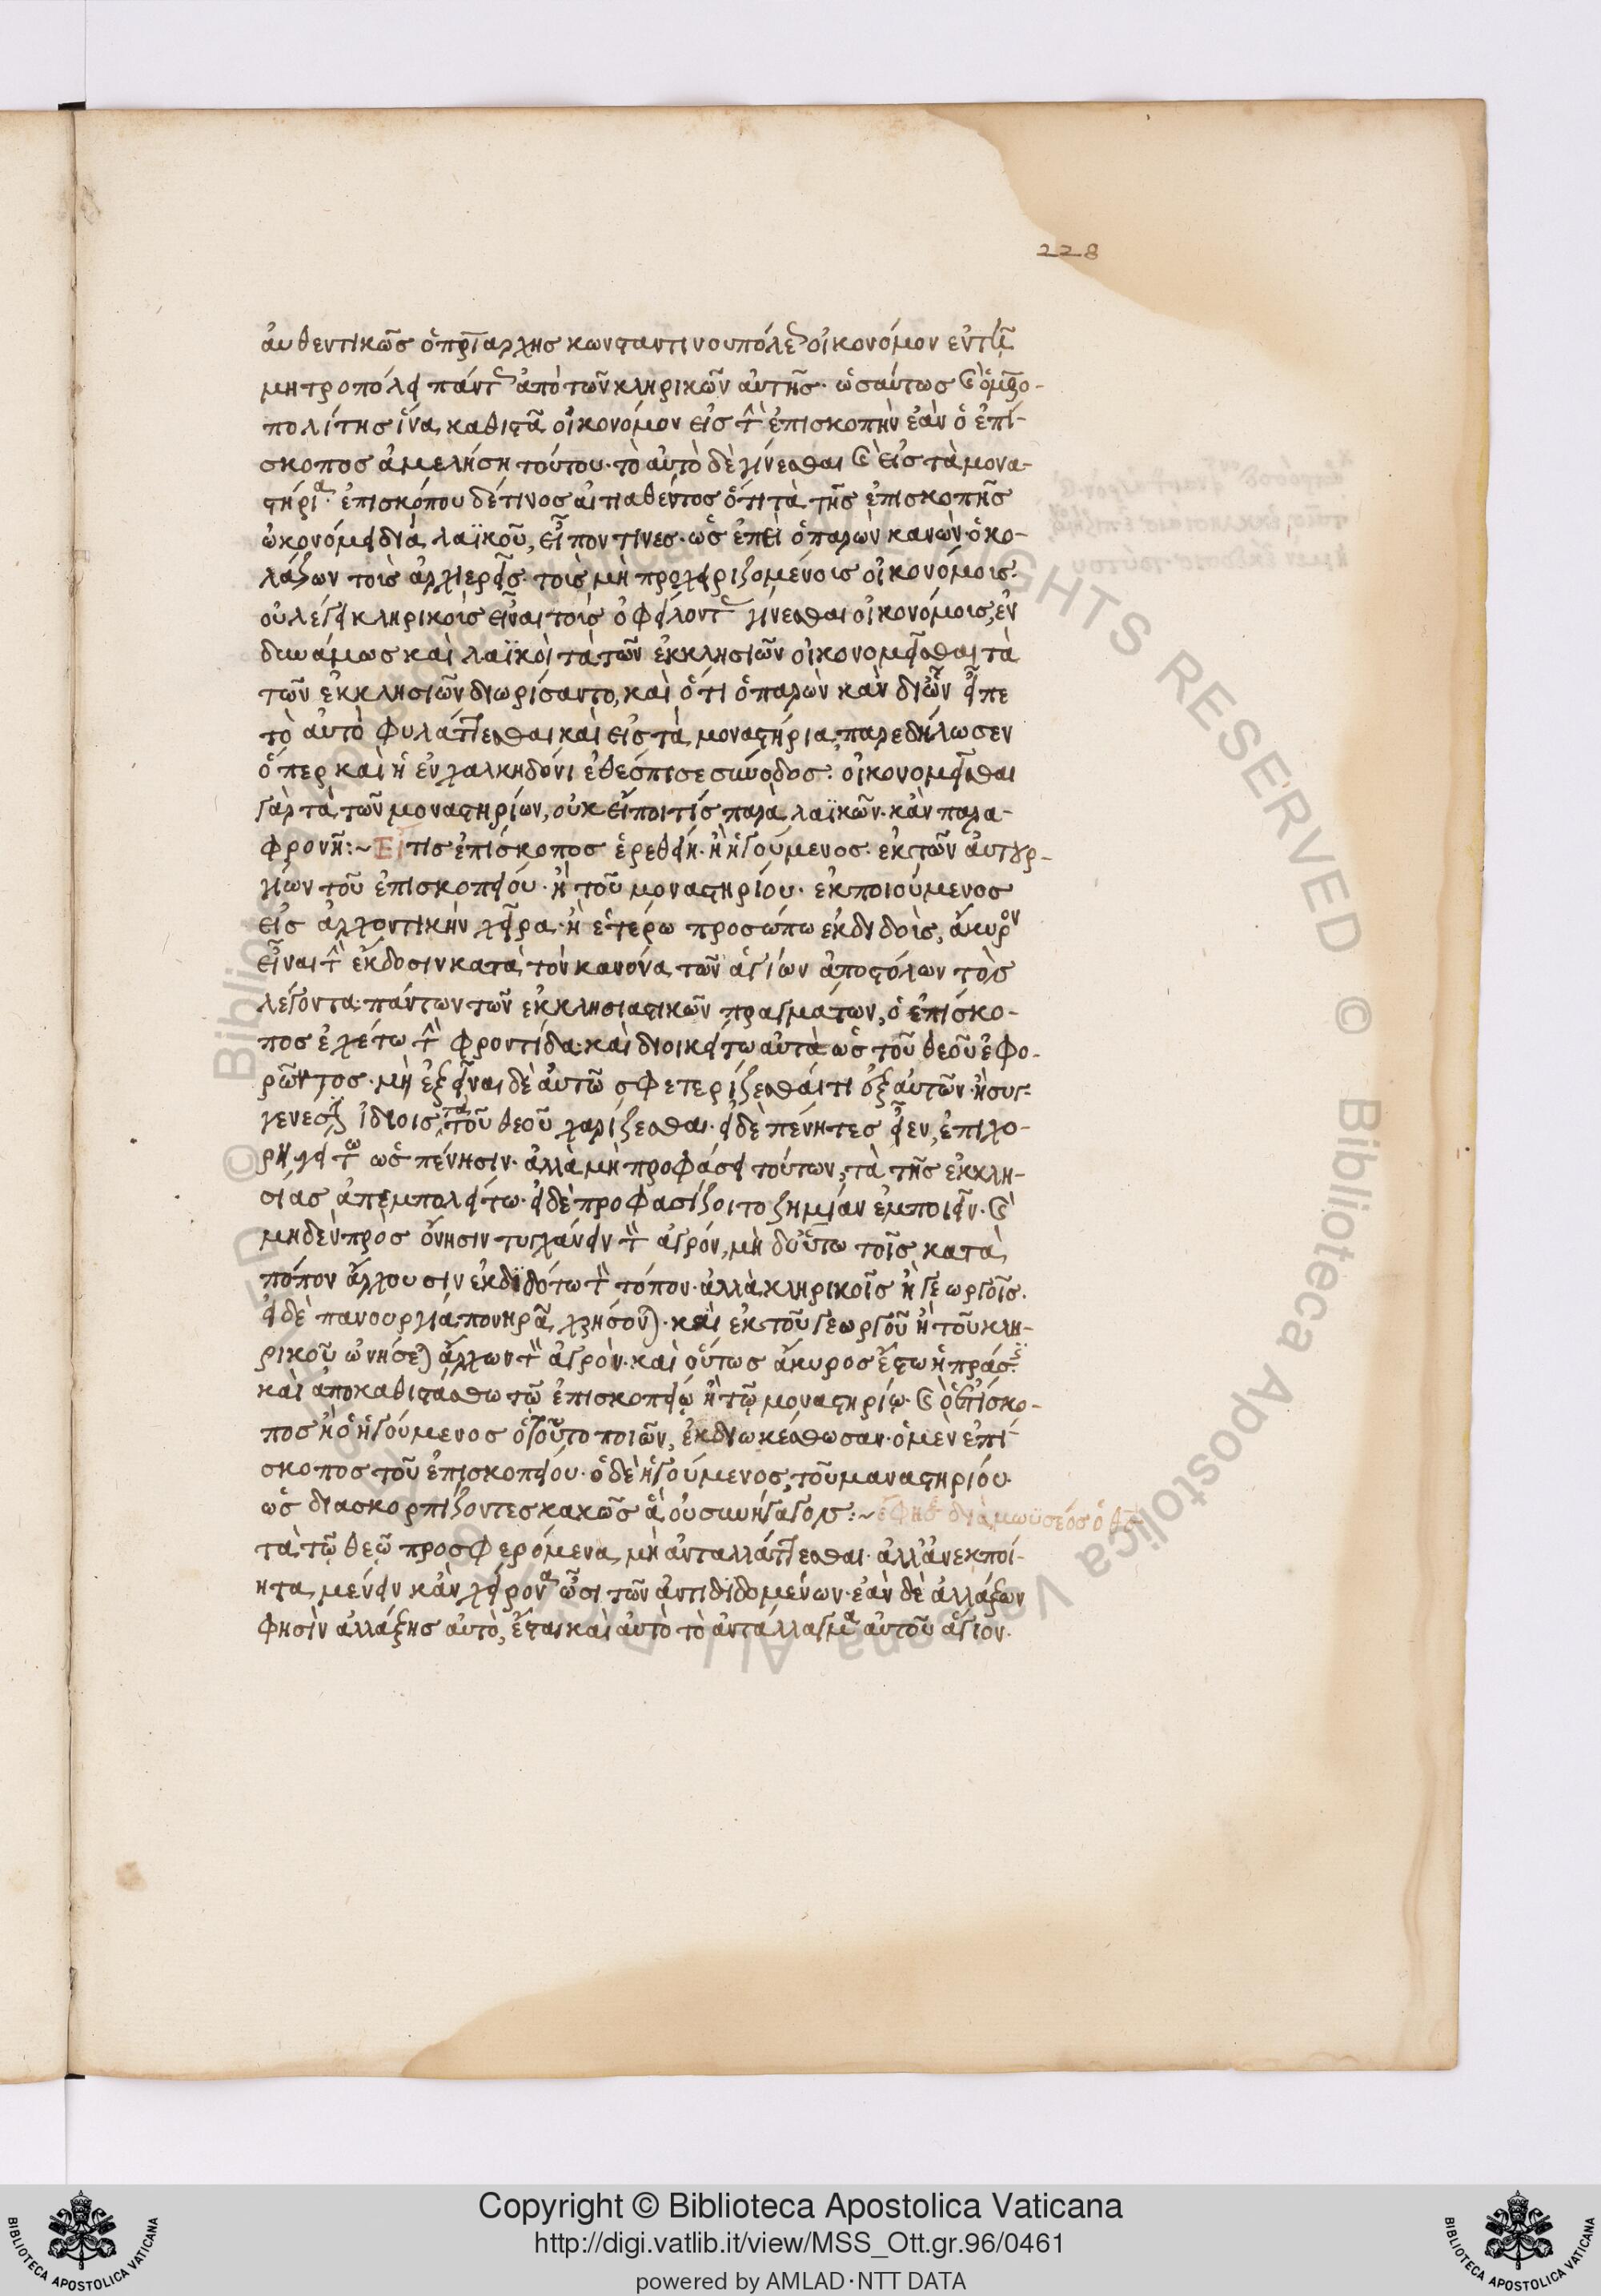 228
αὐθεντικῶς ὁ πριάρχης κωνσταντινουπόλεως οἰκονόμον ἐν τῆ
μητροπόλει πάντως ἀπὸ τῶν κληρικῶν αὐτῆς· ὡσαύτως καὶ ὁ μητρο-
πολίτης ἵνα καθιστᾶ οἰκονόμον εἰς τὴν ἐπισκοπὴν ἐὰν ὁ ἐπί-
σκοπος ἀμελήση τούτου· τὸ αὐτὸ δὲ γίνεσθαι καὶ εἰς τὰ μονα-
στήρια· ἐπισκόπου δέ τινος αἰτιαθέντος ὅτι τὰ τῆς ἐπισκοπῆς
ὠκονόμει διὰ λαϊκοῦ, εἶπον τινες· ὡς ἐπεὶ ὁ παρὼν κανὼν· ὁ κο-
λάζων τοὺς ἀρχιερεῖς· τοὺς μὴ προχειριζομένους οἰκονόμους·
οὐ λέγει κληρικοὺς εἶναι τοὺς ὀφείλοντας γίνεσθαι οἰκονόμους, ἐν
δυνάμως καὶ λαϊκοὶ τὰ τῶν ἐκκλησιῶν οἰκονομεῖσθαι τὰ
τῶν ἐκκλησιῶν διωρίσαντο, καὶ ὅτι ὁ παρὼν κὰν διὧν εἶπε
τὸ αὐτὸ φυλάττεσθαι καὶ εἰς τὰ μοναστήρια, παρεδήλωσεν
ὅπερ καὶ ἡ ἐν χαλκηδόνι ἐθέσπισε σύνοδος· οἰκονομεῖσθαι
γὰρ τὰ τῶν μοναστηρίων, οὐκ εἴποι τίς παρὰ λαϊκῶν· κἂν παρα-
φρονῆ:~ Εἴ τις ἐπίσκοπος εὑρεθείη· ἢ ἡγούμενος· ἐκ τῶν αὐτουρ-
γίων τοῦ ἐπισκοπείου· ἢ τοῦ μοναστηρίου· ἐκποιούμενος
εἰς ἀρχοντικὴν χεῖρα· ἢ ἑτέρω προσώπω ἐκδιδοὺς, ἄκυρον
εἶναι τὴν ἔκδοσιν κατὰ τὸν κανόνα τῶν ἁγίων ἀποστόλων τὸν
λέγοντα· πάντων τῶν ἐκκλησιαστικῶν πραγμάτων, ὁ ἐπίσκο-
πος ἐχέτω τὴν φροντίδα· καὶ διοικείτω αὐτὰ ὡς τοῦ θεοῦ ἐφο-
ρῶντος· μὴ ἐξεῖναι δὲ αὐτῶ σφετερίζεσθαί τι ἐξ αὐτῶν· ἢ συγ-
γενέσιν ἰδίοις τὰ τοῦ θεοῦ χαρίζεσθαι· εἰ δὲ πένητες εἶεν, ἐπιχο-
ρηγείτω ὡς πένησιν· ἀλλὰ μὴ προφάσει τούτων, τὰ τῆς ἐκκλη-
σίας ἀπεμπολείτω· εἰ δὲ προφασίζοιτο ζημίαν ἐμποιεῖν· καὶ
μηδὲν πρὸς ὄνησιν τυγχάνειν τὸν ἀγρόν, μὴ δ' οὕτω τοῖς κατὰ
τόπον ἄρχουσιν ἐκδϊδότω τὸν τόπον· ἀλλὰ κληρικοῖς ἢ γεωργοῖς·
εἰ δὲ πανουργία πονηρᾶ χρήσονται· καὶ ἐκ τοῦ γεωργοῦ ἢ τοῦ κλη-
ρικοῦ ὠνήσεται ἄρχων τὸν ἀγρὸν· καὶ οὕτως ἄκυρος ἔστω ἡ πράσις
καὶ ἀποκαθιστάσθω τῶ ἐπισκοπείῳ ἢ τῶ μοναστηρίῳ· καὶ ὁ ἐπίσκο-
πος ἢ ὁ ἡγούμενος ὁ τοῦτο ποιῶν, ἐκδιωκέσθωσαν· ὁ μὲν ἐπί-
σκοπος τοῦ ἐπισκοπείου· ὁ δὲ ἡγούμενος, τοῦ μαναστηρίου·
ὡς διασκορπίζοντες κακῶς ἃ οὐ συνήγαγον:~ ἔφησε διὰ μωϋσέος ὁ θς
τὰ τῶ θεῶ προσφερόμενα μὴ ἀνταλλάττεσθαι· ἀλλ' ἀνεκποί-
ητα μένειν κἂν χείρονα ὦσι τῶν ἀντιδιδομένων· ἐὰν δὲ ἀλλάξων
φησὶν ἀλλάξης αὐτὸ, ἔσται καὶ αὐτὸ τὸ ἀντάλλαγμα αὐτοῦ ἅγιον·
Copyright © Biblioteca Apostolica Vaticana
http://digi.vatlib.it/view/MSS_Ott.gr.96/0461
powered by AMLAD·NTT DATA